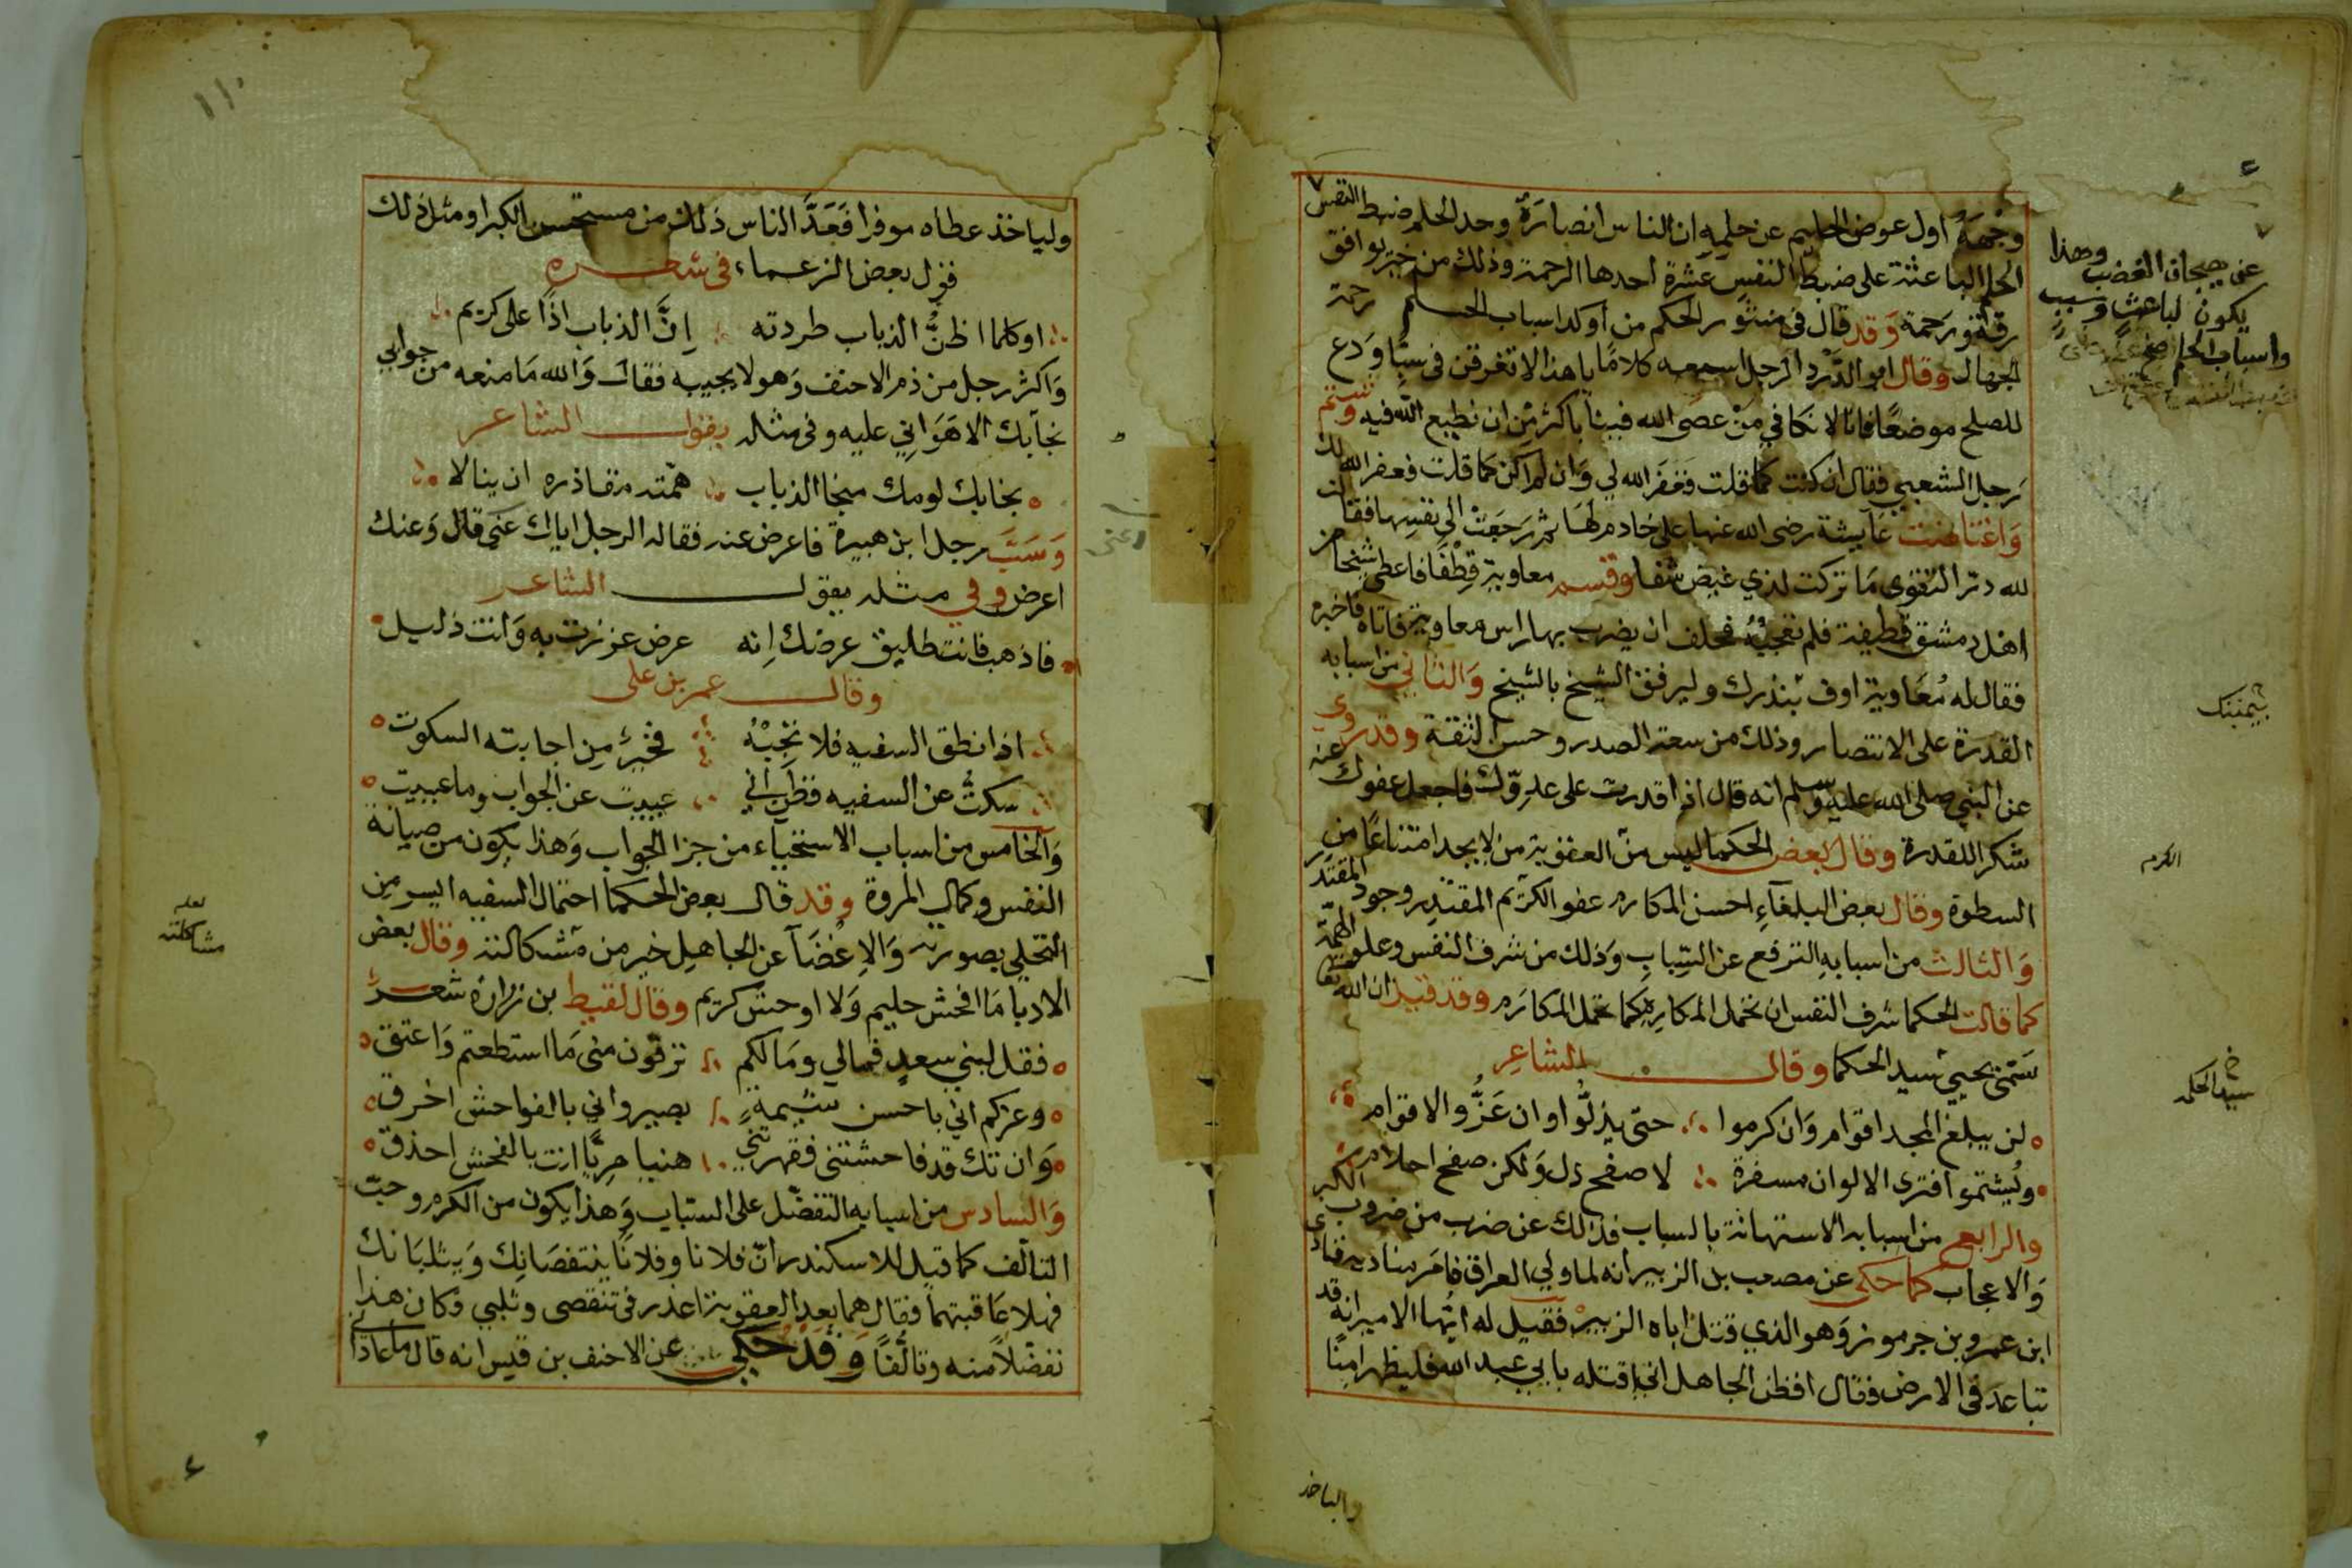 وجهه اول عوض الحليم عن حلمه ان الناس انصاره وحد الحلم ضبط النفس
عن هيجان الغضب وهذا
يكون لباعث وسبب
واسباب الحلم
الحلم الباعثة على ضبط النفس عشرة احدها الرحمة وذلك من خير يوافق
رقة ورحمة وقد قال في منثور الحكم من أوكد اسباب الحلم رحمة
الجهال وقال ابو الدرد الرجل اسمعه كلامًا يا هذا لا تغرقن في سبّنا وَدع
للصلح موضعًا فانا لا نكافي منْ عصى الله فينا باكثر من ان نطيع الله فيه وشتم
رجل الشعبي فقال ان كنت كما قلت فغفر الله لي وَان لم اكن كما قلت فغفر الله لك
وَاغتاظت عآيشة رضى الله عنها على خادم لها ثم رَجعَتْ الى نفسِها فقالت
لله درّ التقوى مَا تركت لذي غيض شفا وقسم معاوية قِطْفًا فاعطى شيخا من
اهل دمشق قطيفة فلم تعجبْهُ فحلف ان يضرب بها راس معاوية فاتاه فاخبره
فقال له مُعَاوية اوف بنذرك وليرفق الشيخ بالشيخ وَالثاني من اسبابه
القدرة على الانتصار وذلك من سعة الصدر وحسن الثقة وقد روي
عن النبي صلى الله عليه وسلم انه قال اذا قدرت على عدوّك فاجعل عفوك عنه
شكرا للقدرة وقال بعض الحكما ليس منّ العقوبة من لا يجد امتناعًا من
السطوة وقال بعض البلغآءِ احسن المكارم عفو الكريم المقتدر وجود المقتر
الكرم
وَالثالث من اسبابه الترفع عن السِّباب وَذلك من شرف النفس وعلو الهمّة
كما قالت الحكما شرف النفس ان تحمل المكاره كما تحمل المكارَم وقد قيل ان الله تعا
سَمّى يحيى سيد الحكما وقال الشاعر
لن يبلغ المجد اقوام وَان كرموا حتّى يذلّوا وان عَزُّوا لاقوام
ويُشتموا فترى الالوان مسفرة لا صفح ذل وَلكن صفح احلام
والرابع من اسبابه الاستهانة بالسباب فذلك عن ضرب من ضروب الكبر
وَالاعجاب كما حكى عن مصعب بن الزبير انه لما ولي العراق فامَر مناديه فنادى
ابن عمرو بن جرموز وَهو الذي قتل اباه الزبيرْ فقيل له ايّها الامير انه قد
تباعد في الارض فقال افظن الجاهل اني اقتله بابي عبد الله فليظهر امِنًا
والياخذ
١١٠
ولياخذ عطاه موفرا فَعَدَّ الناس ذلك من مستحسن الكبر او مثل ذلك
قول بعض الزعماء في شعره
اوكلما اظنُّ الذباب طردته إنَّ الذباب اذًا على كريم
وَاكثر رجل من ذم الاحنف وَهو لا يجيبه فقال وَالله مَا منعه من جوابي
الا هَوَاني عليه وفي مثله يقول الشاعر
نجابك لومك منجا الذباب همّته مقاذره ان ينالا
وَسَبَّ رجل ابن هبيرة فاعرض عنه فقال له الرجل اياك عنى قال وَعنك
اعرض وفي مثله يقول الشاعر
فاذهب فانت طليق عرضك إنه عرض عززت به وَانت ذليل
وقال عمر بن على
اذا نطق السفيه فلا تجِبْهُ فخير مِن اجابته السكوت
سكتُّ عن السفيه فظن اني عييت عن الجواب وما عييت
وَالخامس من اسباب الاستحيآء من جزا الجواب وَهذا يكون من صيانة
النفس وكمال المروة وقد قال بعض الحكما احتمال السفيه ايسر مِن
التحلي بصورته وَالاِعْضَآ عن الجاهل خير من مشكالته وقال بعض
مشاكلته
الادبا مَا افحش حليم وَلا اوحش كريم وقال لقيط بن زراره شعر
فقل لبني سعدٍ فمالي ومَالكم ترقون منى مَا استطعتم وَاعتق
وعزكم اني باحسن شيمةٍ بصير واني بالفواحش اخرق
وَان تك قد فاحشتنى فقهرتني هنيا مريًّا انت بالفحش احذق
وَالسادس من اسبابه التفضّل على السّباب وَهذا يكون من الكرم وحبّ
التالف كما قيل للاسكندر انّ فلانا وفلانًا ينتقصَانِك وَيثلبَانك
فهلا عَاقبتهما فقال هما بعد العقوبة اعذر في تنقصى وثلبي وكان هذا
تفضّلاً منه وتالّفًا وَقَدْ حَكى عن الاحنف بن قيس انه قال ما عاداني